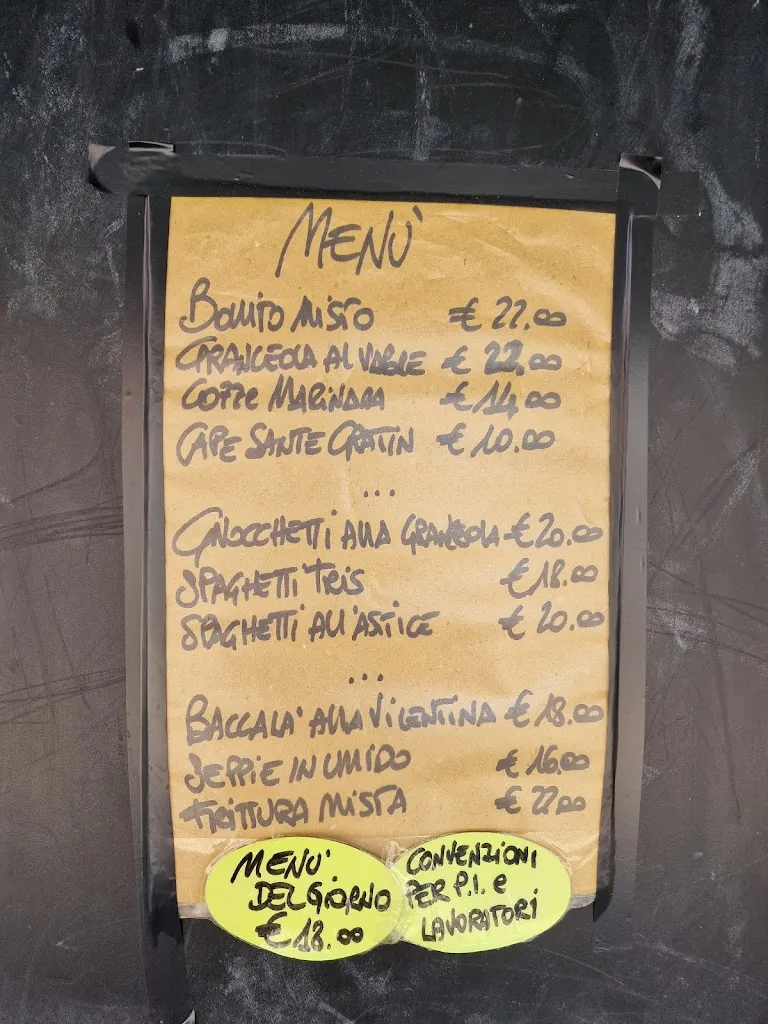 MENU'
BOLLITO MISTO € 22.00
GRANCEOLA AL VABLE € 22.00
COZZE MARINARA € 14.00
CAPE SANTE GRATIN € 10.00
...
GNOCCHETTI ALLA GRANCEOLA € 20.00
SPAGHETTI TRIS € 18.00
SPAGHETTI ALL'ASTICE € 20.00
...
BACCALA' ALLA VICENTINA € 18.00
SEPPIE IN UMIDO € 16.00
FRITTURA MISTA € 22.00
MENU'
DEL GIORNO
€ 18.00
CONVENZIONI
PER P.I. e
LAVORATORI